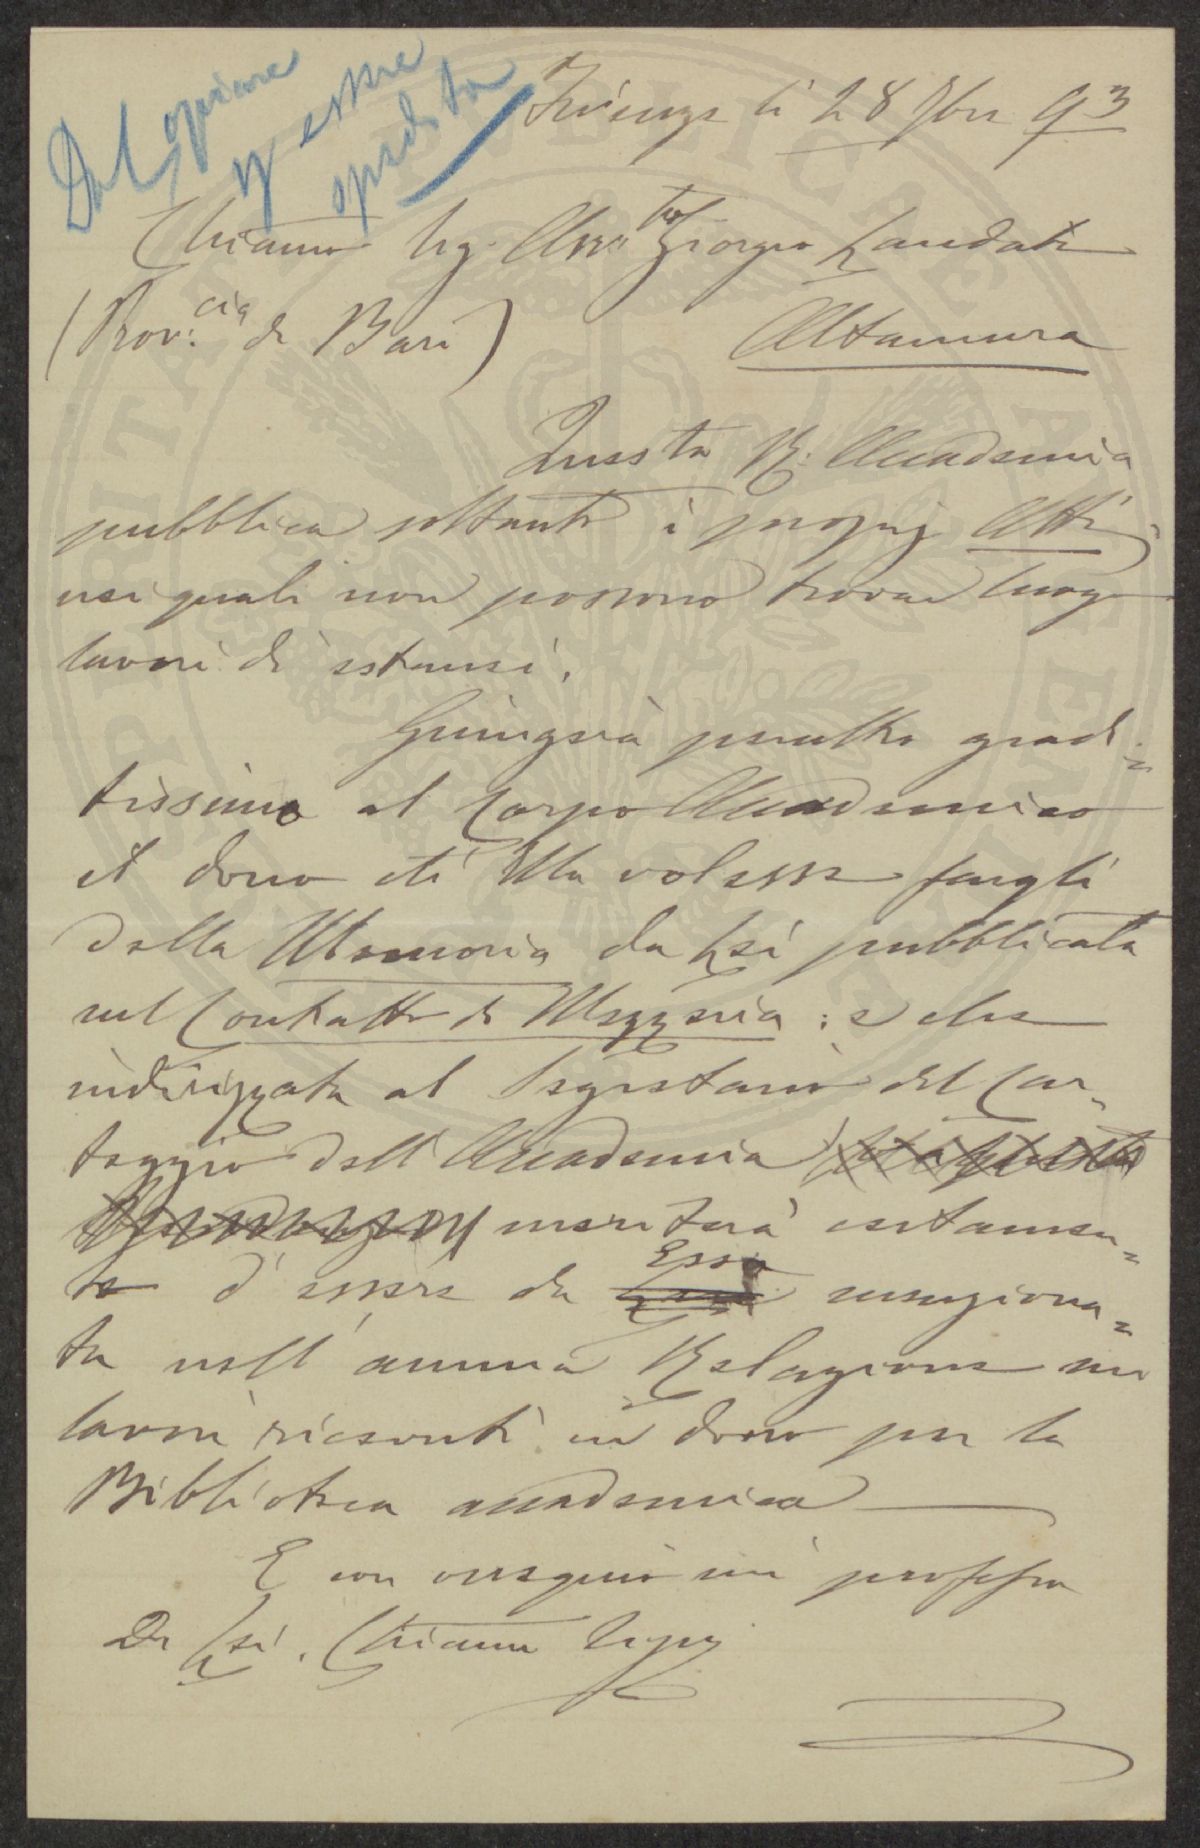 Da copiare
p essere
spedita
Firenze li 28 9bre 93
Chiarmo Sig. Avv.to Giorgio Laudati
(Prov.cia di Bari) Altamura
Questa R. Accademia
pubblica soltanto i proprj Atti,
nei quali non possono trovar luogo
lavori di estranei.
Giungerà peraltro gradi=
tissimo al Corpo Accademico
il dono che Ella volesse fargli
della Memoria da Lei pubblicata
sul Contratto di Mezzeria: e che
indirizzata al Segretario del Car=
teggio dell'Accademia
meriterà certamen=
te d'essere da Esso menziona=
ta nell'annua Relazione sui
lavori ricevuti in dono per la
Biblioteca accademica
E con ossequio mi professo
Di Lei, Chiarmo Sigre